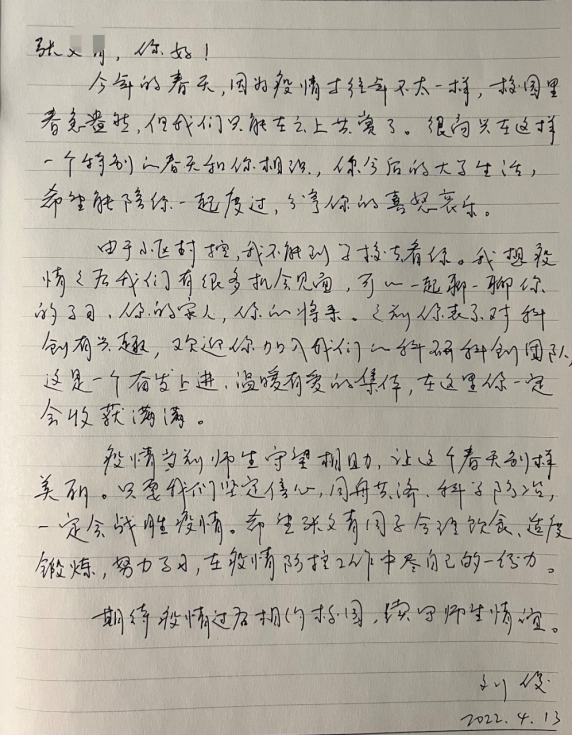 张文 , 你好!
今年的春天,因为疫情才往年不太一样,校园里
春意盎然,但我们只能在云上共赏了。很高兴在这样
一个特别的春天和你相识,你今后的大学生活,
希望能陪你一起度过,分享你的喜怒哀乐。
由于小区封控,我不能到学校去看你。我想疫
情之后我们有很多机会见面,可以一起聊一聊你
的学习,你的家人,你的将来。之前你表示对科
创有兴趣,欢迎你加入我们的科研科创团队,
这是一个奋发上进、温暖有爱的集体,在这里你一定
会收获满满。
疫情当前师生守望相助,让这个春天别样
美丽。只要我们坚定信心,同舟共济、科学防治,
一定会战胜疫情。希望张文青同学合理饮食、适度
锻炼,努力学习,在疫情防控工作中尽自己的一份力。
期待疫情过后相约校园,续写师生情谊。
刘俊
2022.4.13